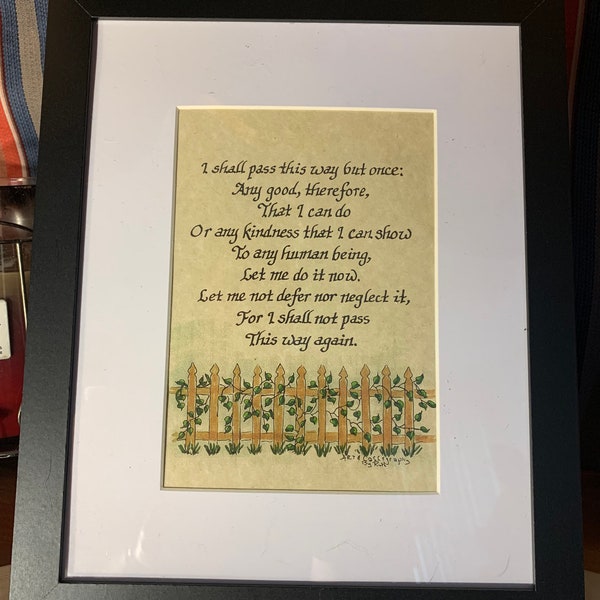 I shall pass this way but once;
Any good, therefore,
That I can do
Or any kindness that I can show
To any human being,
Let me do it now.
Let me not defer nor neglect it,
For I shall not pass
This way again.
Art & Calligraphy